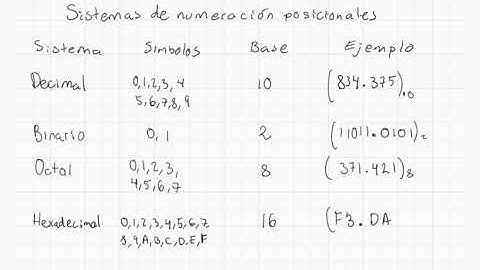 Sistemas de numeración posicionales
Sistema Símbolos Base Ejemplo
Decimal 0,1,2,3,4 10 (834.375)10
5,6,7,8,9
Binario 0,1 2 (11011.0101)2
Octal 0,1,2,3, 8 (371.421)8
4,5,6,7
Hexadecimal 0,1,2,3,4,5,6,7 16 (F3.DA
8,9,A,B,C,D,E,F